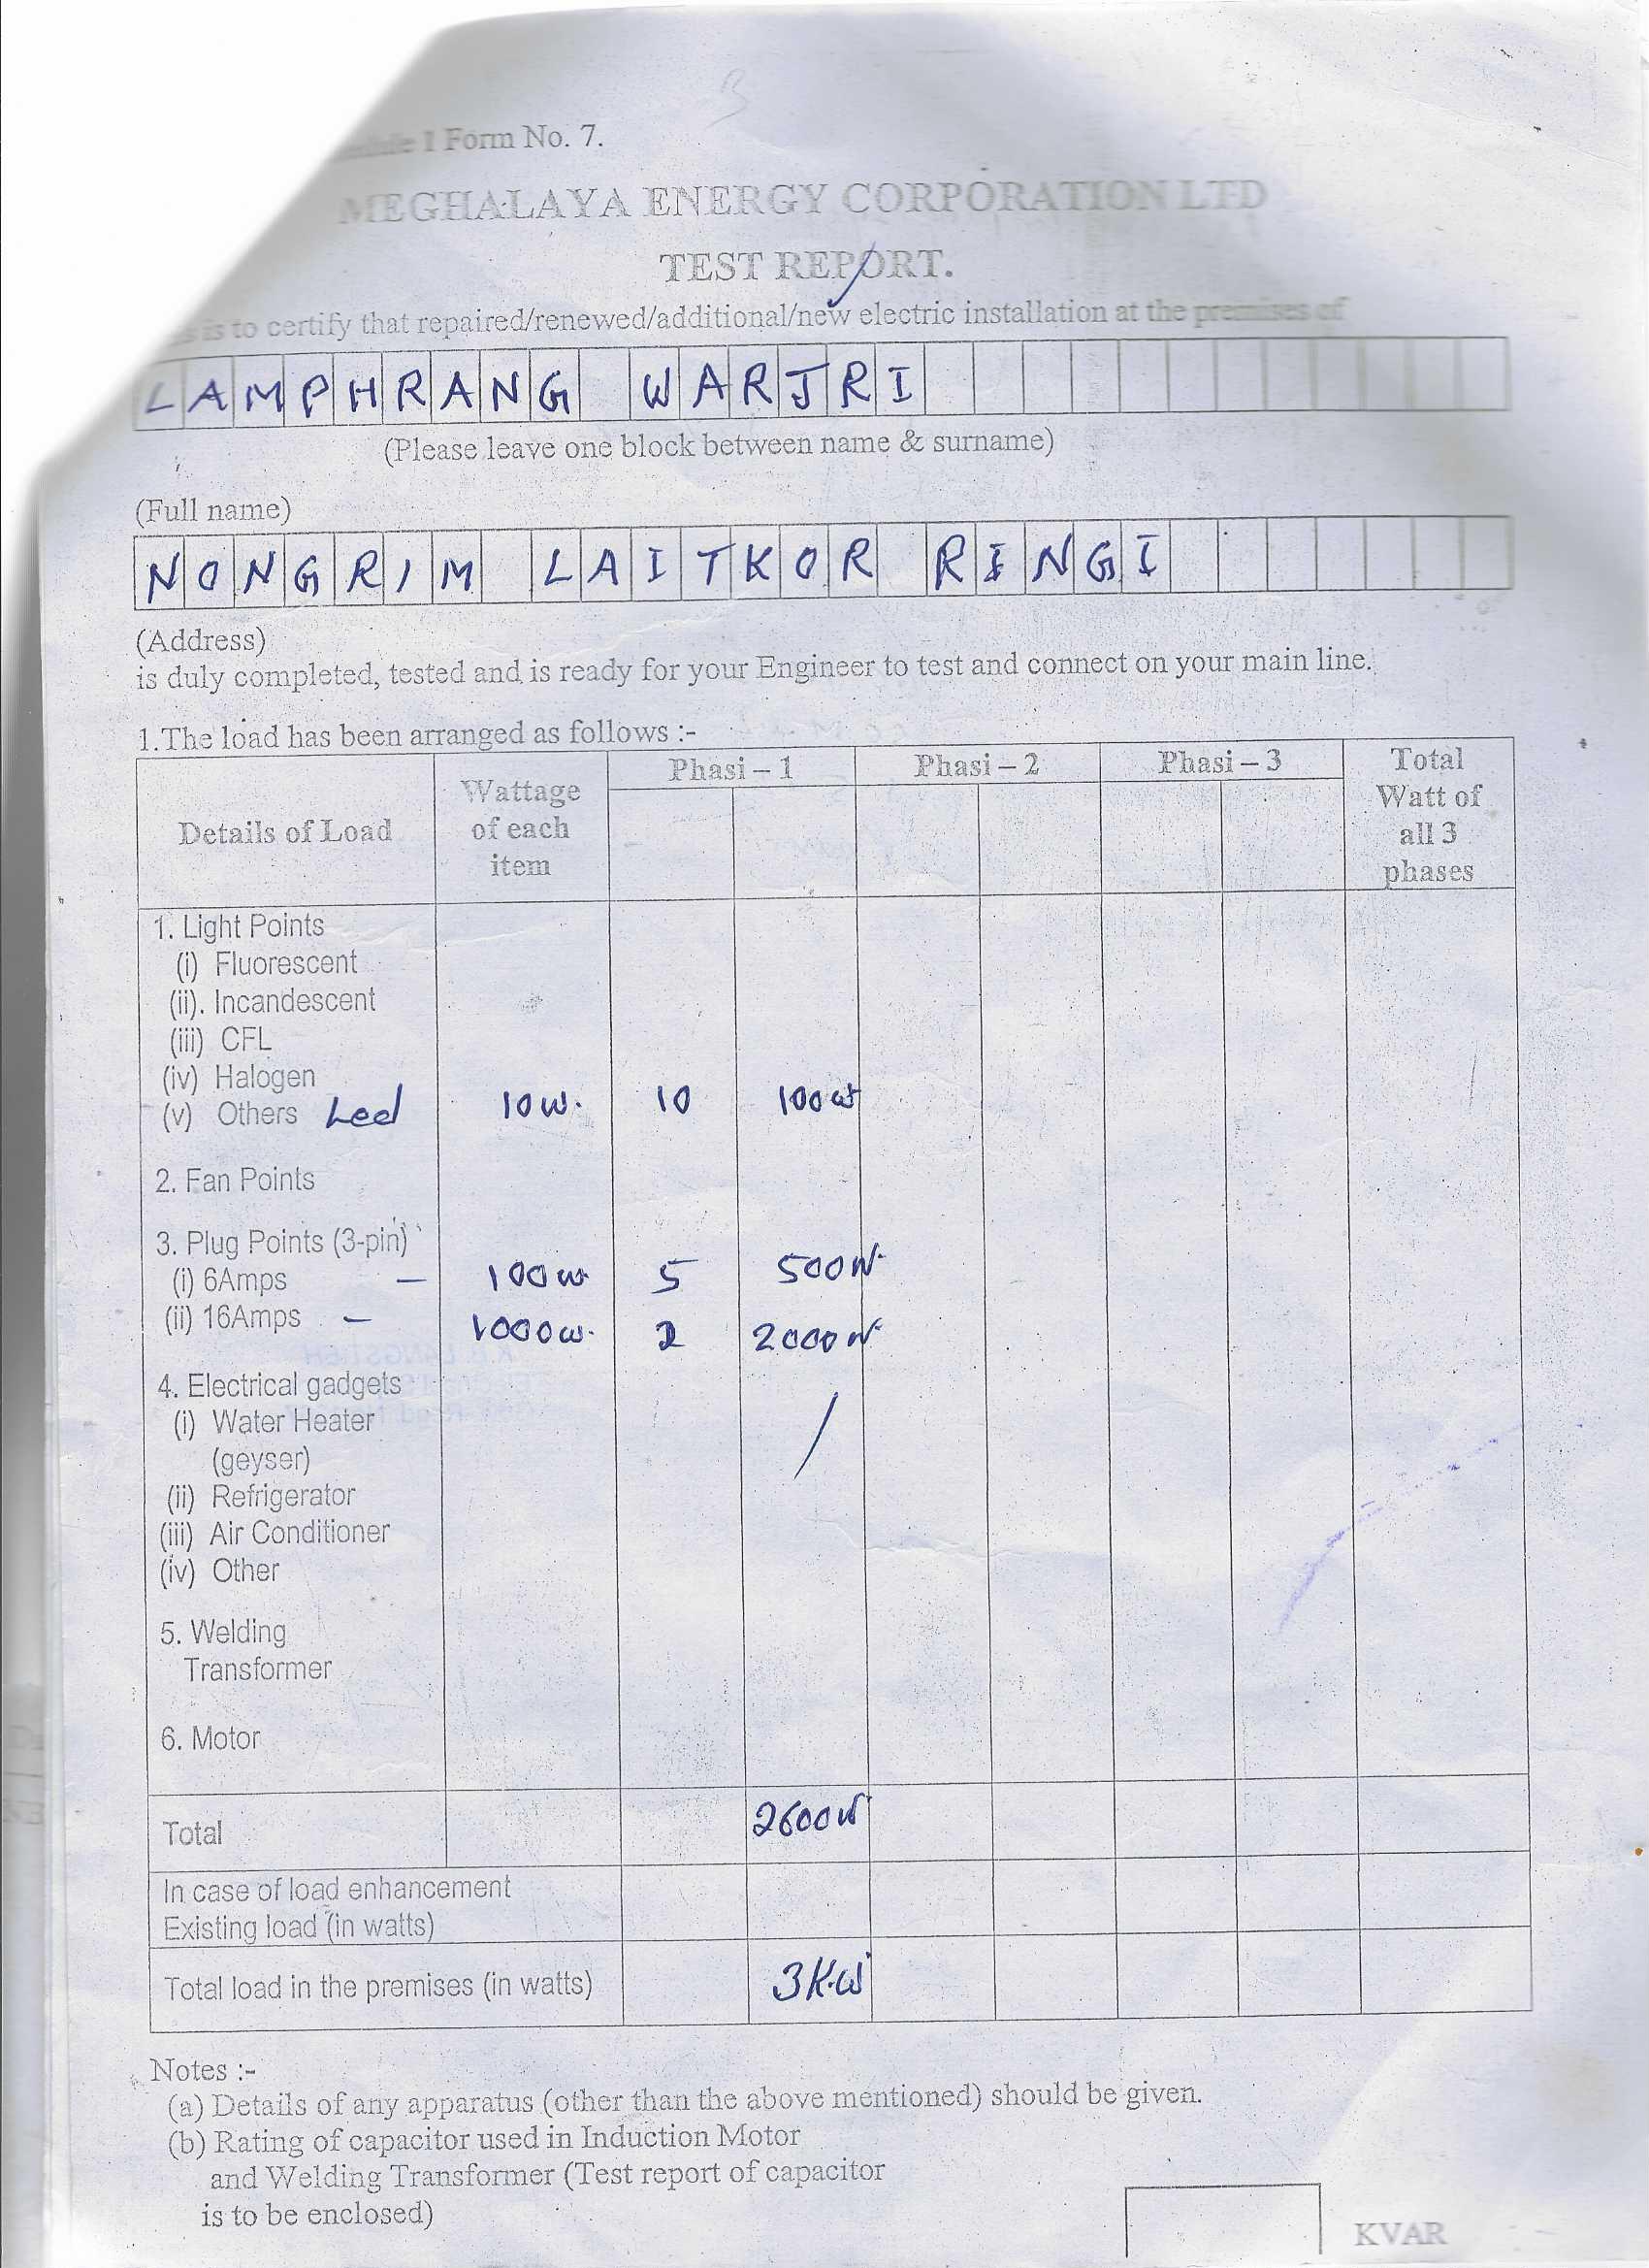 1 Form No. 7.
MEGHALAYA ENERGY CORPORATION LTD
TEST REPORT.
is to certify that repaired/renewed/additional/new electric installation at the premises of
LAMPHRANG WARJRI
(Please leave one block between name & surname)
(Full name)
NONGRIM LAITKOR RINGI
(Address)
is duly completed, tested and is ready for your Engineer to test and connect on your main line.
1.The load has been arranged as follows :-
Details of Load Wattage of each item Phasi – 1 Phasi – 2 Phasi – 3 Total Watt of all 3 phases
1. Light Points
(i) Fluorescent
(ii). Incandescent
(iii) CFL
(iv) Halogen
(v) Others Led 10w. 10 100w
2. Fan Points
3. Plug Points (3-pin)
(i) 6Amps – 100w 5 500W
(ii) 16Amps – 1000w. 2 2000W
4. Electrical gadgets
(i) Water Heater
(geyser)
(ii) Refrigerator
(iii) Air Conditioner
(iv) Other
5. Welding
Transformer
6. Motor
Total 2600W
In case of load enhancement
Existing load (in watts)
Total load in the premises (in watts) 3K.W
Notes :-
(a) Details of any apparatus (other than the above mentioned) should be given.
(b) Rating of capacitor used in Induction Motor
and Welding Transformer (Test report of capacitor
is to be enclosed)
KVAR